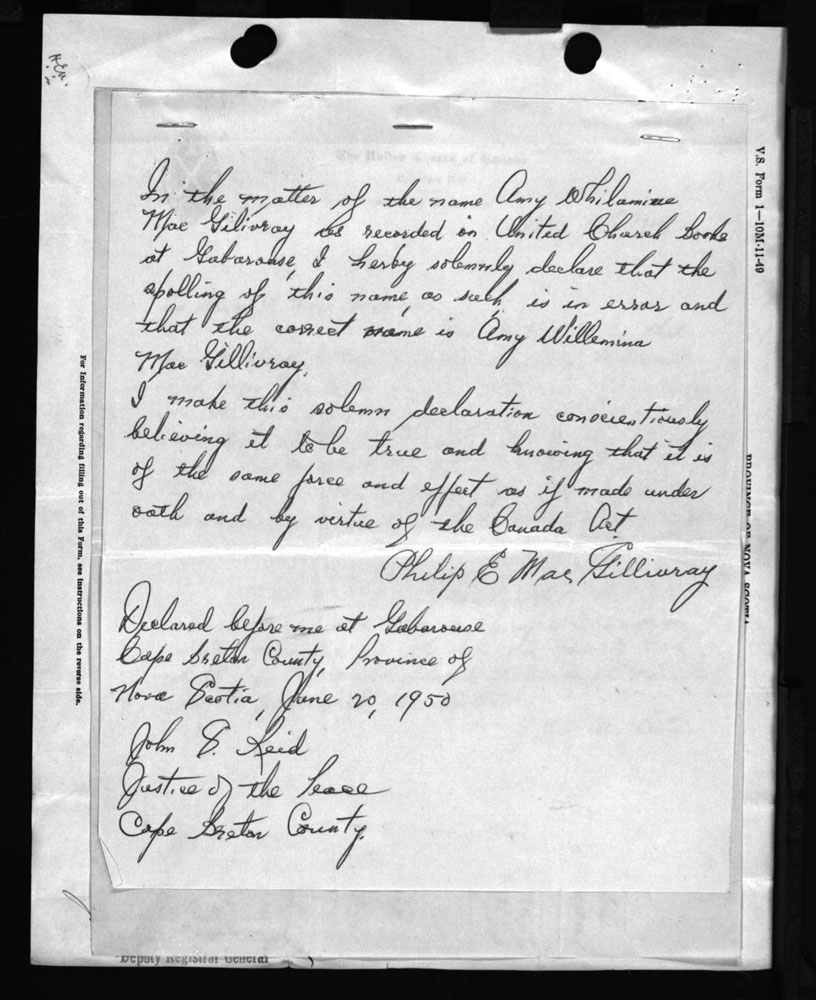 In the matter of the name Amy Whilamine
Mac Gilivray as recorded in United Church books
at Gabarouse, I herby solemnly declare that the
spelling of this name, as such, is in error and
that the correct name is Amy Willemina
Mac Gillivray.
I make this solemn declaration conscientiously
believing it to be true and knowing that it is
of the same force and effect as if made under
oath and by virtue of the Canada Act.
Philip E Mac Gillivray
Declared before me at Gabarouse
Cape Breton County, Province of
Nova Scotia, June 20, 1950
John S. Reid
Justice of the Peace
Cape Breton County.
V.S. Form 1—10M-11-49
PROVINCE OF NOVA SCOTIA
For Information regarding filling out of this Form, see instructions on the reverse side.
Deputy Registrar General